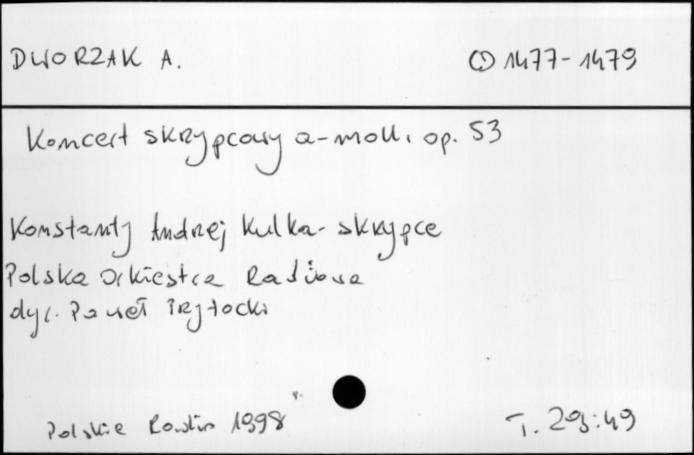 DWORZAK A.
CD 1477-1479
Koncert skrzypcowy a-moll, op. 53
Konstanty Andrzej Kulka - skrzypce
Polska Orkiestra Radiowa
dyr. Paweł Przytocki
Polskie Radio 1998 r.
T. 29:49